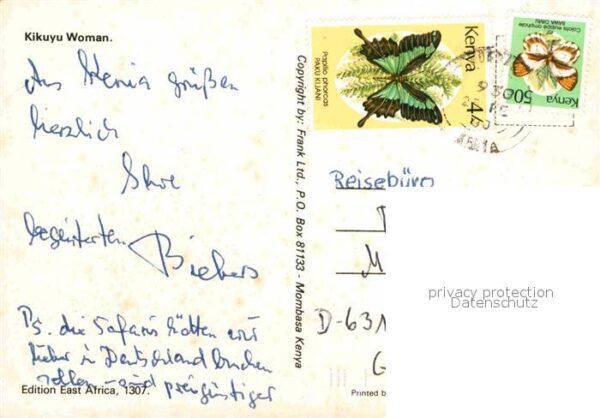 Kikuyu Woman.
Aus Kenia grüßen
herzlich
Ihre
begeisterten
Biebers
PS. die Safaris hätten wir
lieber in Deutschland buchen
sollen - sind preisgünstiger
Edition East Africa, 1307.
Copyright by: Frank Ltd., P.O. Box 81133 - Mombasa Kenya
Papilio phorcas
PAKU KIJANI
Kenya
4/-
Colotis euippe omphale
Kenya
50c
Reisebüro
D-631
Printed b
privacy protection
Datenschutz